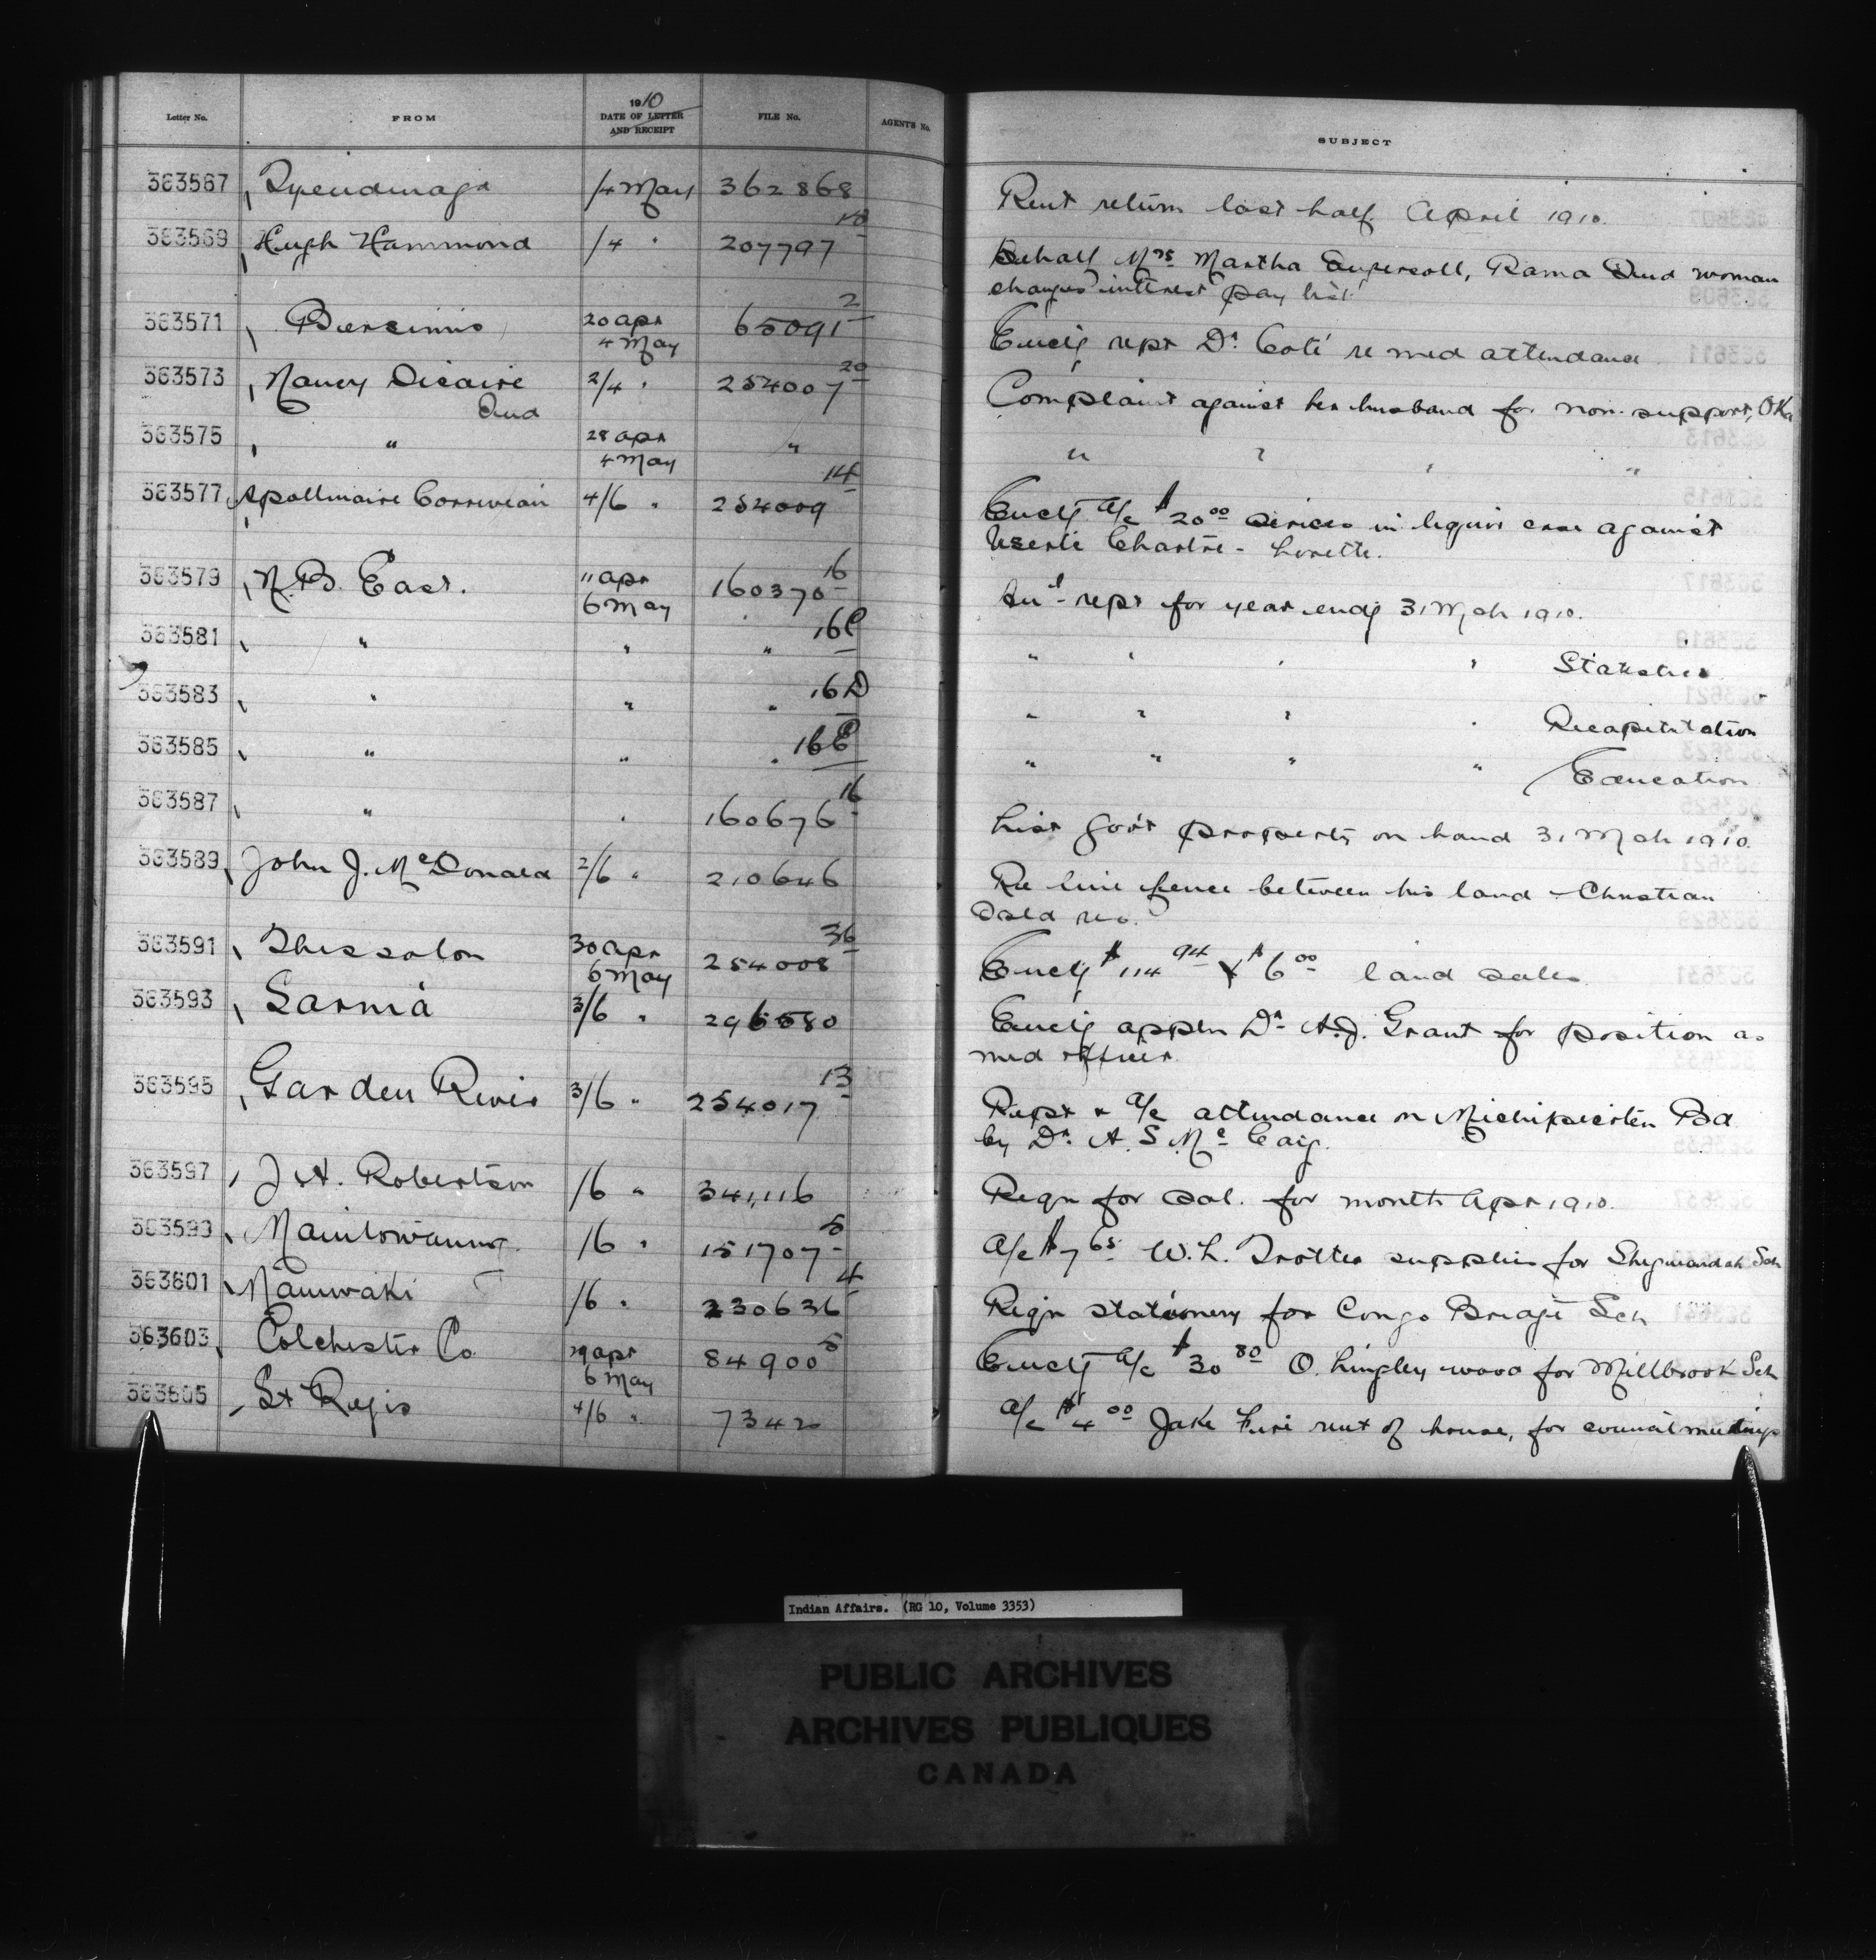 Letter No. FROM 1910 DATE OF LETTER AND RECEIPT FILE No. AGENTS No. SUBJECT
363567 Tyendinaga /4 May 362868 Rent return last half April 1910.
363569 Hugh Hammond /4 " 207797 Behalf Mrs Martha Ingersoll, Rama Ind woman
charges interest pay list
363571 Bersimis 20 Apr 65091 2 Encl'g rept Dr. Coté re med attendance
4 May
363573 Nancy Dicaire 2/4 " 254007 20 Complaint against her husband for non-support, Oka
Ind
363575 " 28 Apr " " " " "
4 May
363577 Apollinaire Corriveau 4/6 " 254009 14 Encl'g a/c $20 00 services in liquor case against
Chartre - Lorette.
363579 N.B. East. 11 Apr 160370 16 An'l rept for year end'g 31 Mch 1910.
6 May
363581 " " " 16C " " " " Statistics
363583 " " " 16D " " " " Recapitulation
363585 " " " 16E " " " " Education
363587 " " 160676 16 List Gov't property on hand 31 Mch 1910.
363589 John J. McDonald 2/6 " 210646 Re line fence between his land & Christian
Isld res.
363591 Thessalon 30 Apr 254008 36 Encl'g $114 94 & $6 00 land sales
6 May
363593 Sarnia 3/6 " 296580 Encl'g appln Dr. A.J. Grant for position as
med officer
363595 Garden River 3/6 " 254017 13 Rept & a/c attendance on Michipicoten Bd
by Dr. A. S. McCaig.
363597 J A. Robertson /6 " 341,116 Reqn for sal. for month Apr 1910.
363599 Manitowaning /6 " 151707 5 a/c $7 65 W. L. Trotter supplies for Sheguiandah Sch
363601 Maniwaki /6 " 230636 4 Reqn stationery for Congo Bridge Sch
363603 Colchester Co. 29 Apr 84900 5 Encl'g a/c $30 80 O. Lingley wood for Millbrook Sch
6 May
363605 St Regis 4/6 " 73420 a/c $4 00 Jake Fire rent of house, for council meetings
Indian Affairs. (RG 10, Volume 3353)
PUBLIC ARCHIVES
ARCHIVES PUBLIQUES
CANADA